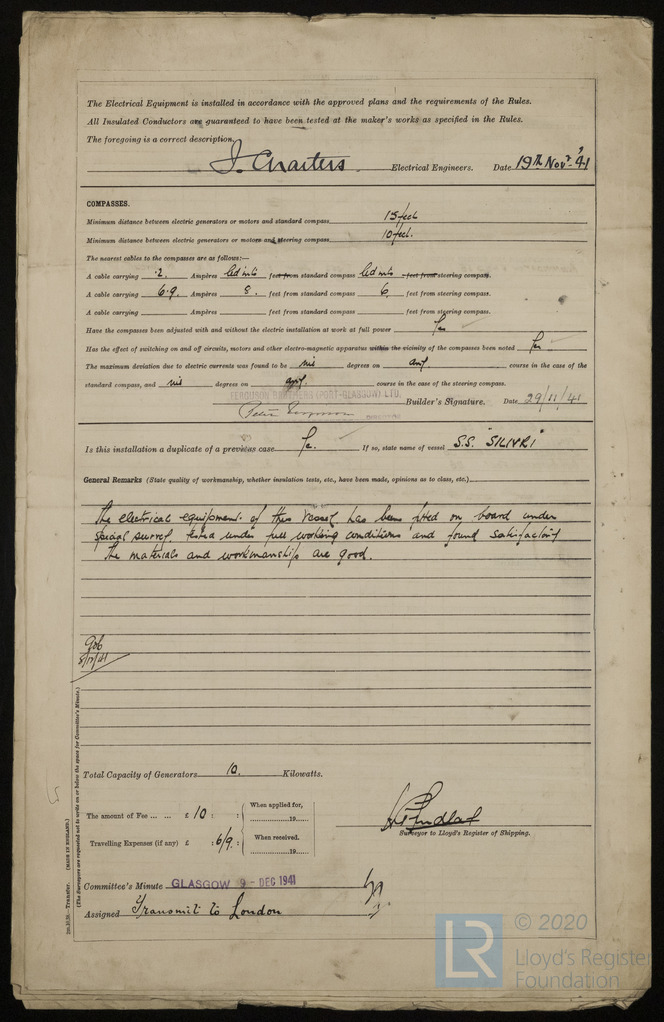 The Electrical Equipment is installed in accordance with the approved plans and the requirements of the Rules.
All Insulated Conductors are guaranteed to have been tested at the maker's works as specified in the Rules.
The foregoing is a correct description.
J. Charters Electrical Engineers. Date 19th Novr. '41
COMPASSES.
Minimum distance between electric generators or motors and standard compass 15 feet
Minimum distance between electric generators or motors and steering compass 10 feet.
The nearest cables to the compasses are as follows:—
A cable carrying .2. Ampères led into feet from standard compass led into feet from steering compass.
A cable carrying 6.9. Ampères 8. feet from standard compass 6 feet from steering compass.
A cable carrying Ampères feet from standard compass feet from steering compass.
Have the compasses been adjusted with and without the electric installation at work at full power Yes
Has the effect of switching on and off circuits, motors and other electro-magnetic apparatus within the vicinity of the compasses been noted Yes
The maximum deviation due to electric currents was found to be nil degrees on any course in the case of the
standard compass, and nil degrees on any course in the case of the steering compass.
FERGUSON BROTHERS (PORT-GLASGOW) LTD.
Peter Ferguson DIRECTOR Builder's Signature. Date 29/11/41
Is this installation a duplicate of a previous case Yes. If so, state name of vessel S.S. "SILIVRI"
General Remarks (State quality of workmanship, whether insulation tests, etc., have been made, opinions as to class, etc.)
The electrical equipment of this vessel has been fitted on board under
special survey. tested under full working conditions and found satisfactory
The materials and workmanship are good.
8/12/41
Total Capacity of Generators 10. Kilowatts.
The amount of Fee ... ... £ 10 : :
When applied for,
19
Travelling Expenses (if any) £ : 6/9 :
When received.
19
Surveyor to Lloyd's Register of Shipping.
Committee's Minute GLASGOW 9 - DEC 1941
Assigned Transmit to London
(The Surveyors are requested not to write on or below the space for Committee's Minute.)
(MADE IN ENGLAND.)
LR © 2020
Lloyd's Register
Foundation